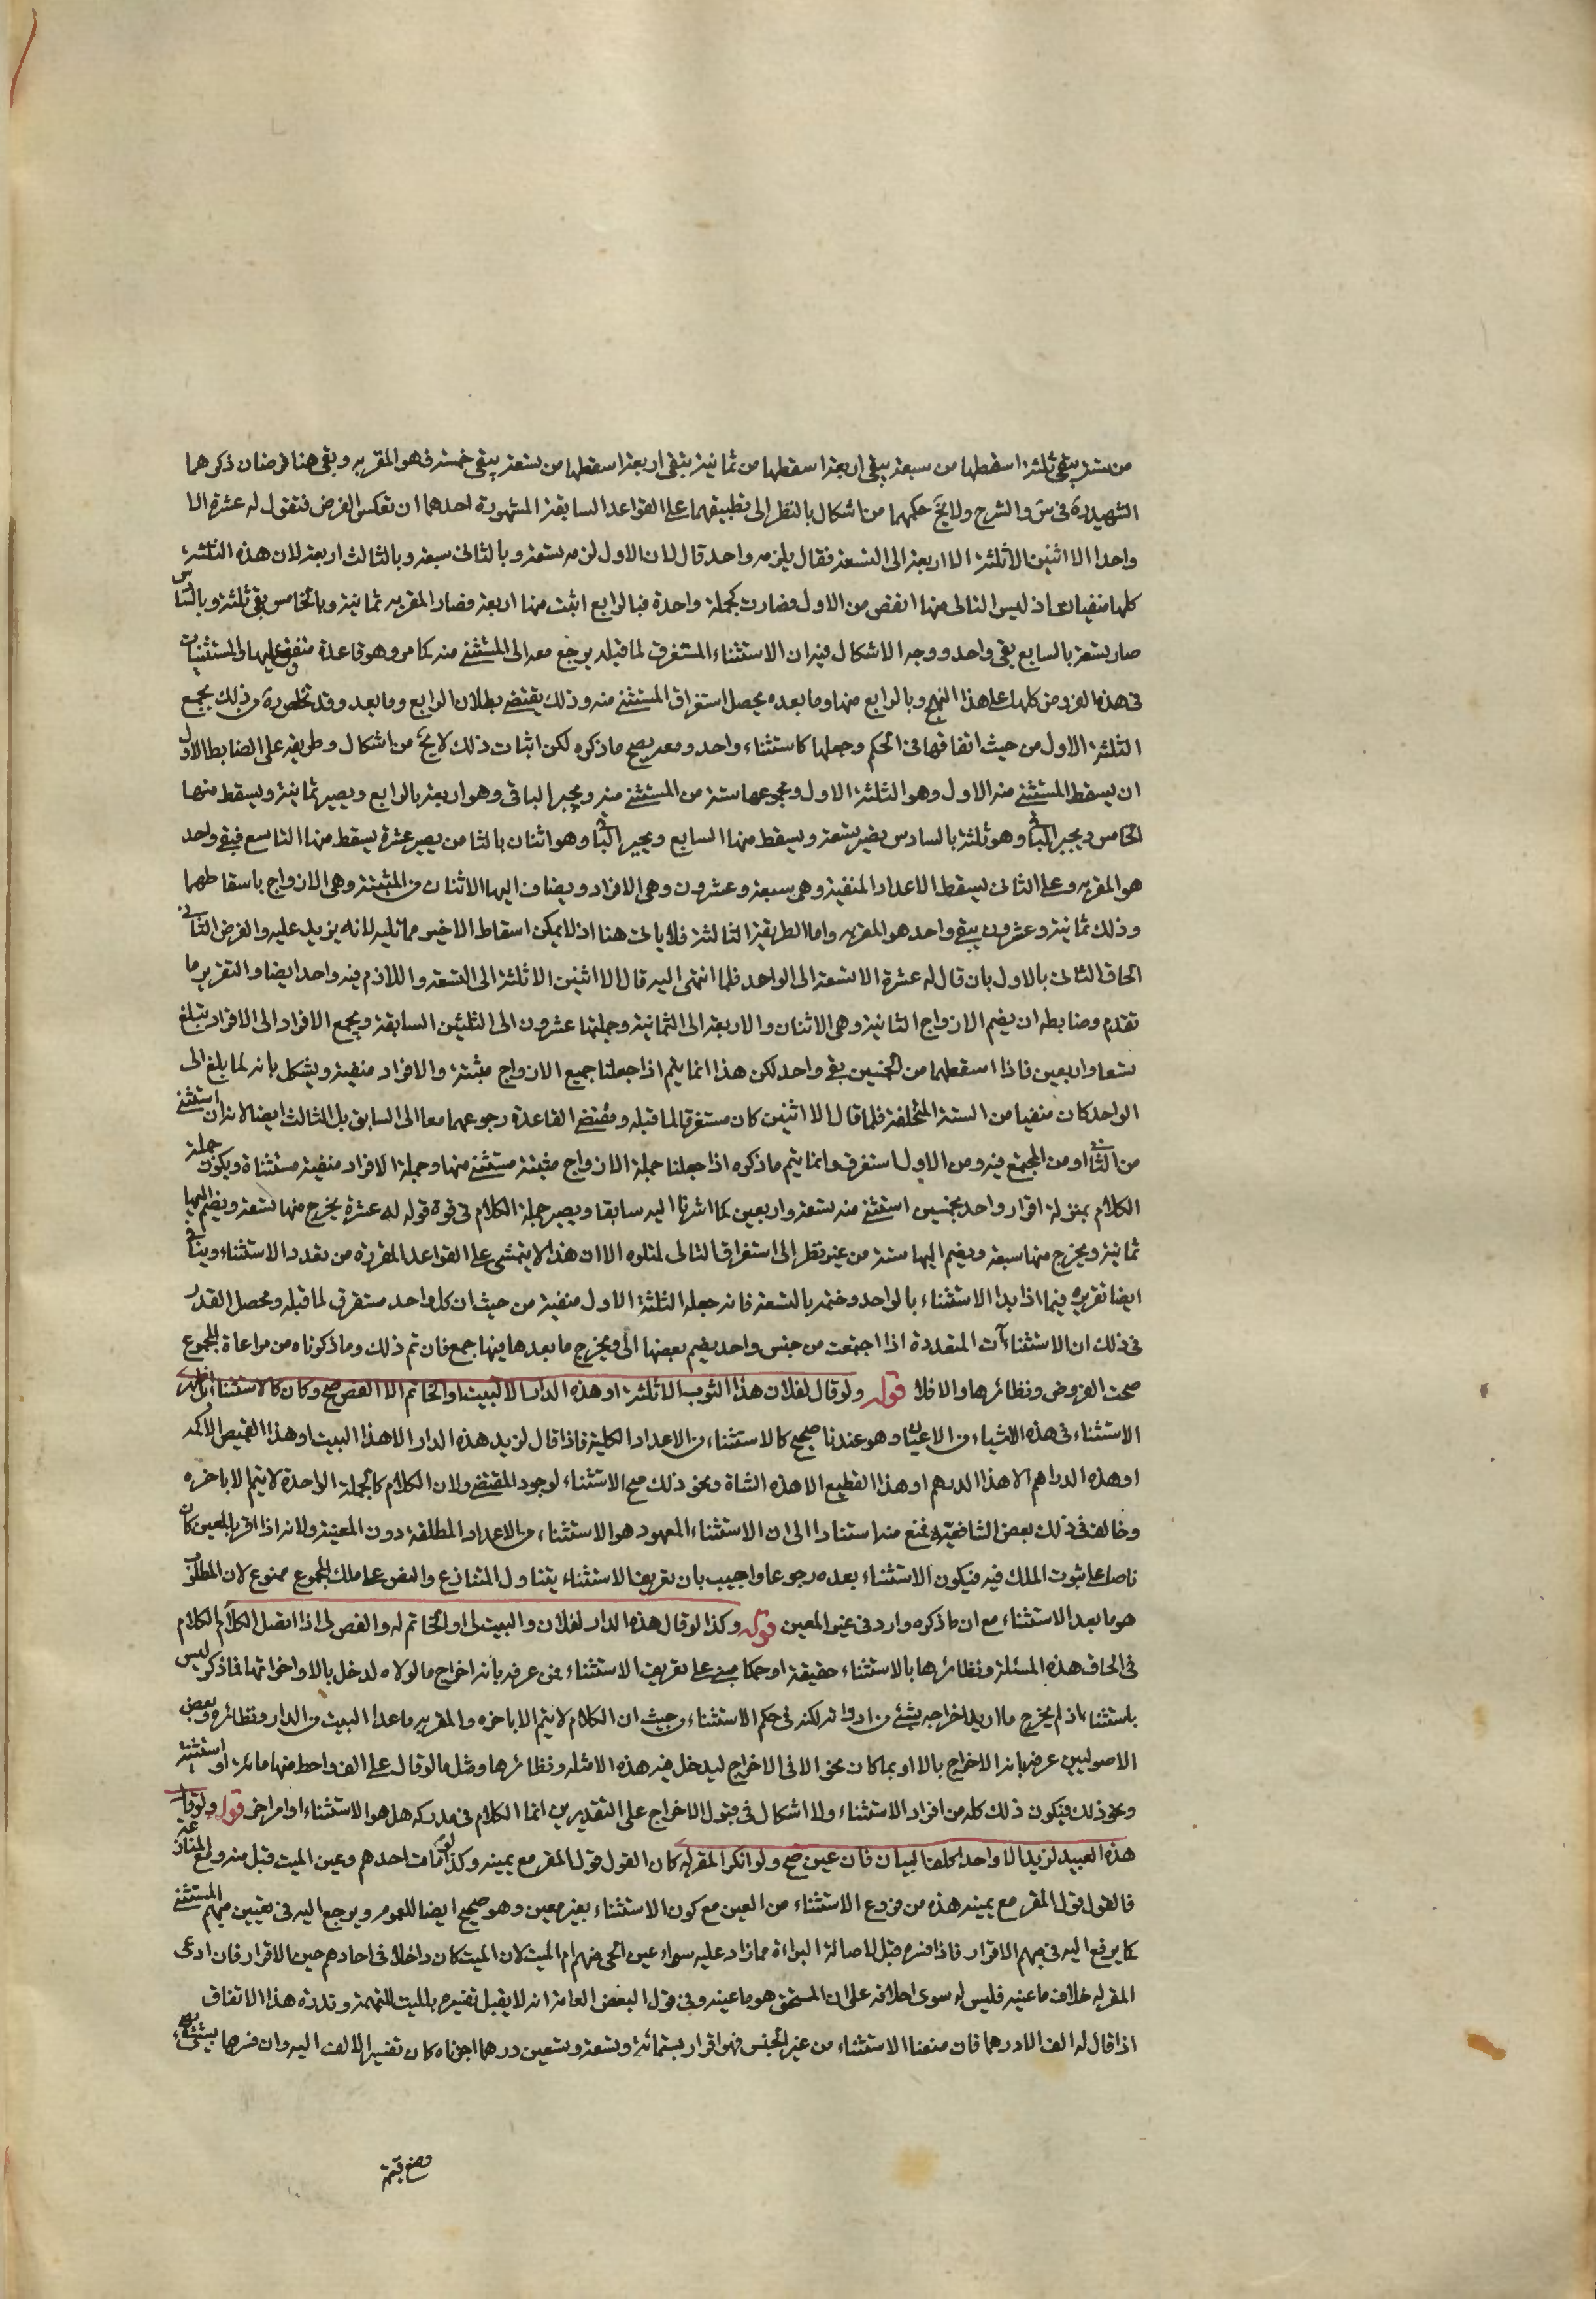 من ستة يبقى ثلثة اسقطها من سبعة يبقى اربعة اسقطها من ثمانية يبقى اربعة اسقطها من تسعة يبقى خمسة فهو المقر به وبقى هنا فرضان ذكرهما
الشهيد ره فى س والشرح ولا يخ حكمهما من اشكال بالنظر الى تطبيقهما على القواعد السابقة المشهورة احدهما ان تعكس الفرض فتقول له عشرة الا
واحدا الا اثنين الا ثلثة الا اربعة الى التسعة فقال يلزمه واحد قال لان الاول لزمه تسعة وبالثانى سبعة وبالثالث اربعة لان هذه الثلثة
كلها منفيات اذ ليس التالى منها انقص من الاول فصارت كجملة واحدة فبالرابع اثبت منها اربعة فصار المقر به ثمانية وبالخامس بقى ثلثة وبالسادس
صار تسعة بالسابع بقى واحد ووجه الاشكال فيه ان الاستثناء المستغرق لما قبله يرجع معه الى المستثنى منه كما مر وهو قاعدة متفق عليها والمستثنيات
فى هذه الفروض كلها على هذا النهج وبالرابع منها وما بعده يحصل استغراق المستثنى منه وذلك يقتضى بطلان الرابع وما بعد وقد تخلص ره من ذلك بجمع
الثلثة الاول من حيث اتفاقها فى الحكم وجعلها كاستثناء واحد ومعه يصح ما ذكره لكن اثبات ذلك لا يخ من اشكال وطريقه على الضابط الاول
ان يسقط المستثنى منه الاول وهو الثلثة الاول ومجموعها ستة من المستثنى منه ويجبر الباقى وهو اربعة بالرابع ويصير ثمانية ويسقط منها
الخامس ويجبر الباقى وهو ثلثة بالسادس يصير تسعة ويسقط منها السابع ويجبر الباقى وهو اثنان بالثامن يصير عشرة يسقط منها التاسع فيبقى واحد
هو المقر به وعلى الثانى يسقط الاعداد المنفية وهى سبعة وعشرون وهى الافراد ويضاف اليها الاثنان من المثبتة وهى الازواج باسقاطهما
وذلك ثمانية وعشرون يبقى واحد هو المقر به واما الطريقة الثالثة فلا ياتى هنا اذ لا يمكن اسقاط الاخير مما تليه لانه يزيد عليه والفرض الثانى
الحاق الثانى بالاول بان قال له عشرة الا تسعة الى الواحد فلما انتهى اليه قال الا اثنين الا ثلثة الى التسعة واللازم فيه واحد ايضا والتقرير ما
تقدم وضابطه ان يضم الازواج الثانية وهى الاثنان والاربعة الى الثمانية وجملتها عشرون الى الثلثين السابقة ويجمع الافراد الى الافراد يتبلغ
تسعا واربعين فاذا اسقطها من الخمسين بقى واحد لكن هذا انما يتم اذا جعلنا جميع الازواج مثبتة والافراد منفية ويشكل بانه لما بلغ الى
الواحد كان منفيا من الستة المتخلفة فلما قال الا اثنين كان مستغرقا لما قبله ومقتضى القاعدة رجوعهما معا الى السابق بل الثالث ايضا لانه ان استثنى
من الثانى او من المجتمع فيه ومن الاول استغرق وانما يتم ما ذكره اذا جعلنا جملة الازواج مثبتة مستثنى منها وجملة الافراد منفية مستثناة ويكون جملة
الكلام بمنزلة اقرار واحد بخمسين استثنى منه تسعة واربعين كما اشرنا اليه سابقا ويصير جملة الكلام فى قوة قوله له عشرة يخرج منها تسعة ويضم اليها
ثمانية ويخرج منها سبعة ويضم اليها ستة من غير نظر الى استغراق التالى لمتلوه الا ان هذا لا يتمشى على القواعد المقررة من تعدد الاستثناء وينافى
ايضا تقريره فيما اذا بدا الاستثناء بالواحد وختمه بالتسعة فانه جعله الثلثة الاول منفية من حيث ان كل واحد مستغرق لما قبله ومحصل القدر
فى ذلك ان الاستثناءآت المتعددة اذا اجتمعت من جنس واحد يضم بعضها الى ويخرج ما بعدها فيها جمع فان تم ذلك وما ذكرناه من مراعاة المجموع
صحت الفروض ونظائرها والا فلا قوله ولو قال لفلان هذا الثوب الا ثلثه او هذه الدار الا البيت او الخاتم الا الفص صح وكان كالاستثناء بل اظهر
الاستثناء فى هذه الاشياء من الاعيان وهو عندنا صحيح كالاستثناء من الاعداد الكلية فاذا قال لزيد هذه الدار الا هذا البيت او هذا القميص الا كمه
او هذه الدراهم الا هذا الدرهم او هذا القطيع الا هذه الشاة ونحو ذلك صح الاستثناء لوجود المقتضى ولان الكلام كالجملة الواحدة لا يتم الا باخره
وخالف فى ذلك بعض الشافعية فمنع منه استنادا الى ان الاستثناء المعهود هو الاستثناء من الاعداد المطلقة دون المعينة ولانه اذا اقر بالمعين كان
ناصا على ثبوت الملك فيه فيكون الاستثناء بعده رجوعا واجيب بان تعريف الاستثناء يتناول المتنازع والنص على ملك المجموع ممنوع لان المطلق
هو ما بعد الاستثناء مع ان ما ذكره وارد فى غير المعين قوله وكذا لو قال هذه الدار لفلان والبيت لى او الخاتم له والفص لى اذا اتصل الكلام الكلام
فى الحاق هذه المسئلة ونظائرها بالاستثناء حقيقة او حكما مبنى على تعريف الاستثناء فمن عرفه بانه اخراج ما لولاه لدخل بالا واخواتها فاذكر ليس
باستثناء اذ لم يخرج ما اريد اخراجه بشئ من ادواته لكنه فى حكم الاستثناء من حيث ان الكلام لا يتم الا باخره والمقر به ما عدا البيت من الدار ونظائره وبعض
الاصوليين عرفه بانه الاخراج بالا او بما كان نحو الا فى الاخراج ليدخل فيه هذه الامثلة ونظائرها ومثل ما لو قال على الف واحط منها مائة او استثنيه
ونحو ذلك فيكون ذلك كله من افراد الاستثناء ولا اشكال فى قبول الاخراج على التقديرين انما الكلام فى مدركه هل هو الاستثناء او امر اخر قوله ولو قال
هذه العبيد لزيد الا واحدا كلف البيان فان عين صح ولو انكر المقر له كان القول قول المقر مع يمينه وكذا لو مات احدهم وعين الميت قبل منه ومع المنازعة
فالقول قول المقر مع يمينه هذه من فروع الاستثناء من العين مع كون الاستثناء بغير معين وهو صحيح ايضا للعموم ويرجع اليه فى تعيين مبهم المستثنى
كما يرفع اليه فى مبهم الاقرار فاذا فسره قبل لاصالة البراءة مما زاد عليه سواء عين الحى منهم ام الميت لان الميت كان داخلا فى احادهم حين الاقرار فان ادعى
المقر له خلاف ما عينه فليس له سوى احلافه على ان المستحق هو ما عينه وفى قول لبعض العامة انه لا يقبل تفسيره بالميت للتهمة وندرة هذا الاتفاق
اذا قال له الف الا درهما فان منعنا الاستثناء من غير الجنس فهو اقرار بتسمائة وتسعة وتسعين درهما اجزناه كان تفسير الالف اليه وان فسرها بشئ